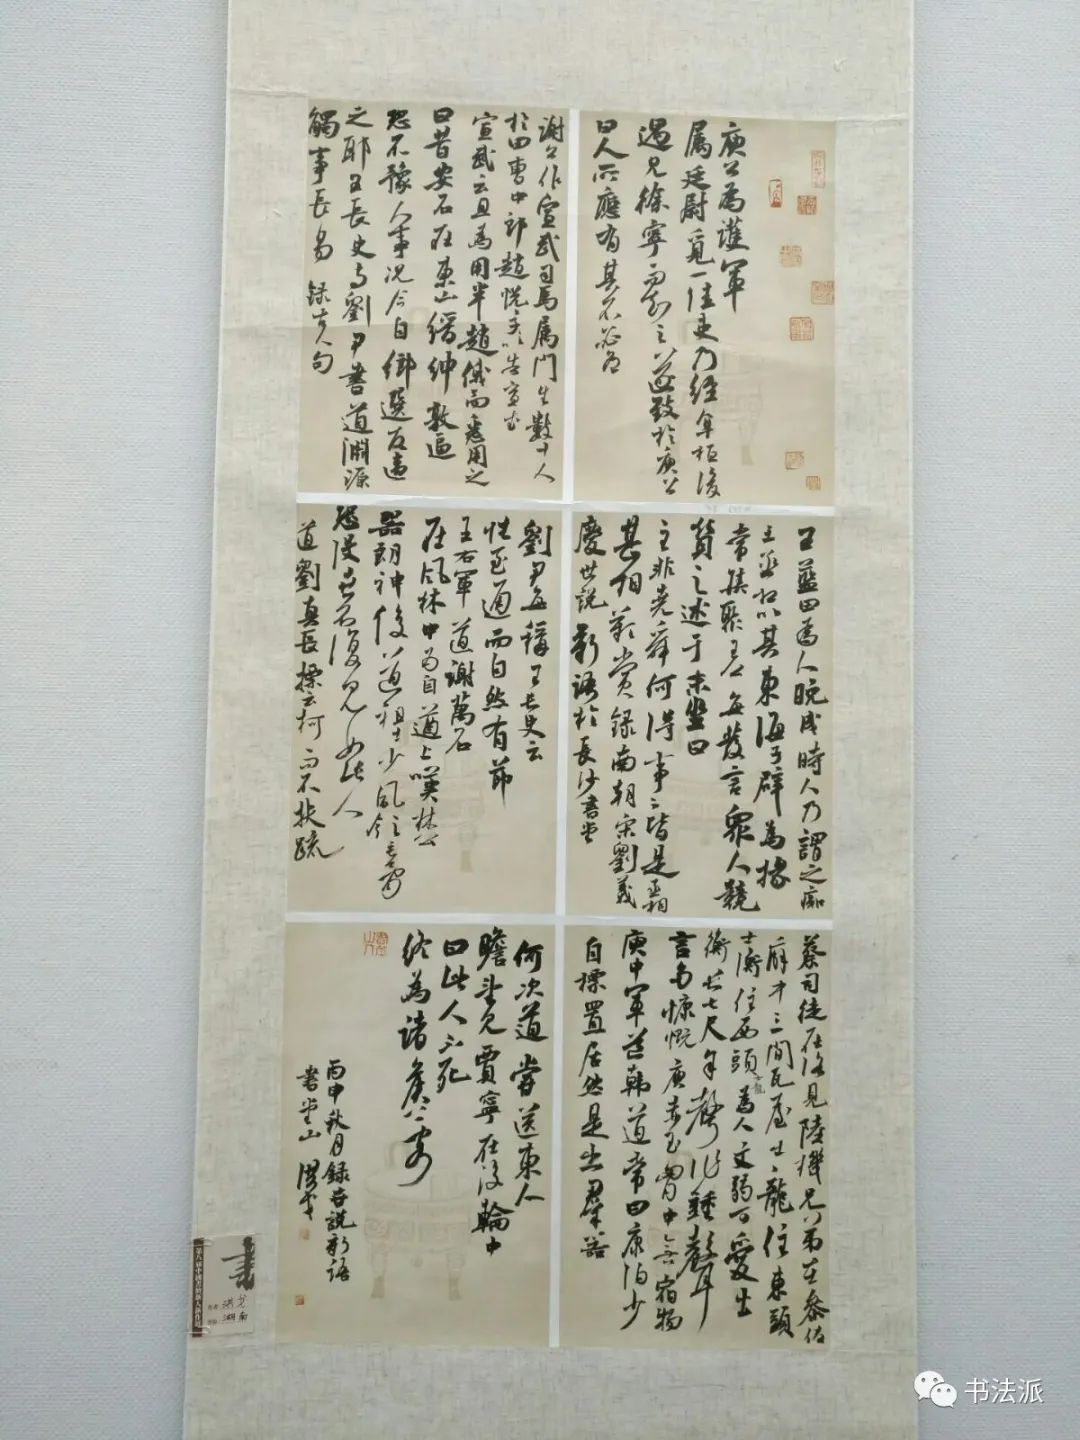 庾公為護軍
属廷尉覓一佳吏乃經年桓後
遇見徐寧而知之遂致於庾公
曰人所應有其不必有
謝公作宣武司馬属門生數十人
於田曹中郎趙悅子悅以告宣武
宣武云且為用半趙俄而悉用之
曰昔安石在東山縉紳敦逼
恐不豫人事況今自鄉選反違
之耶王長史與劉尹書道淵源
觸事長易 録古人句
王藍田為人晚成時人乃謂之癡
王丞相以其東海子辟為掾
常集聚王公每發言眾人競
贊之述于末坐曰
主非堯舜何得事事皆是丞相
甚相歎賞録南朝宋劉義
慶世說新語於長沙書堂
劉尹每稱王長史云
性至通而自然有節
王右軍道謝萬石
在林澤中為自遒上嘆林公
器朗神俊道祖士少風領毛骨
恐沒世不復見如此人
道劉真長標云柯而不扶疏
蔡司徒在洛見陸機兄弟在參佐
廨中三間瓦屋士龍住東頭
士衡住西頭士龍為人文弱可愛士
衡長七尺餘聲作鍾聲
言多慷慨庾赤玉胸中無宿物
庾中軍道韓道常曰康伯少
自標置居然是出羣器
何次道嘗送東人
瞻望見賈寧在後輪中
曰此人不死
終為諸侯上客
丙申秋月録世說新語
書堂山
書
湖南
书法派